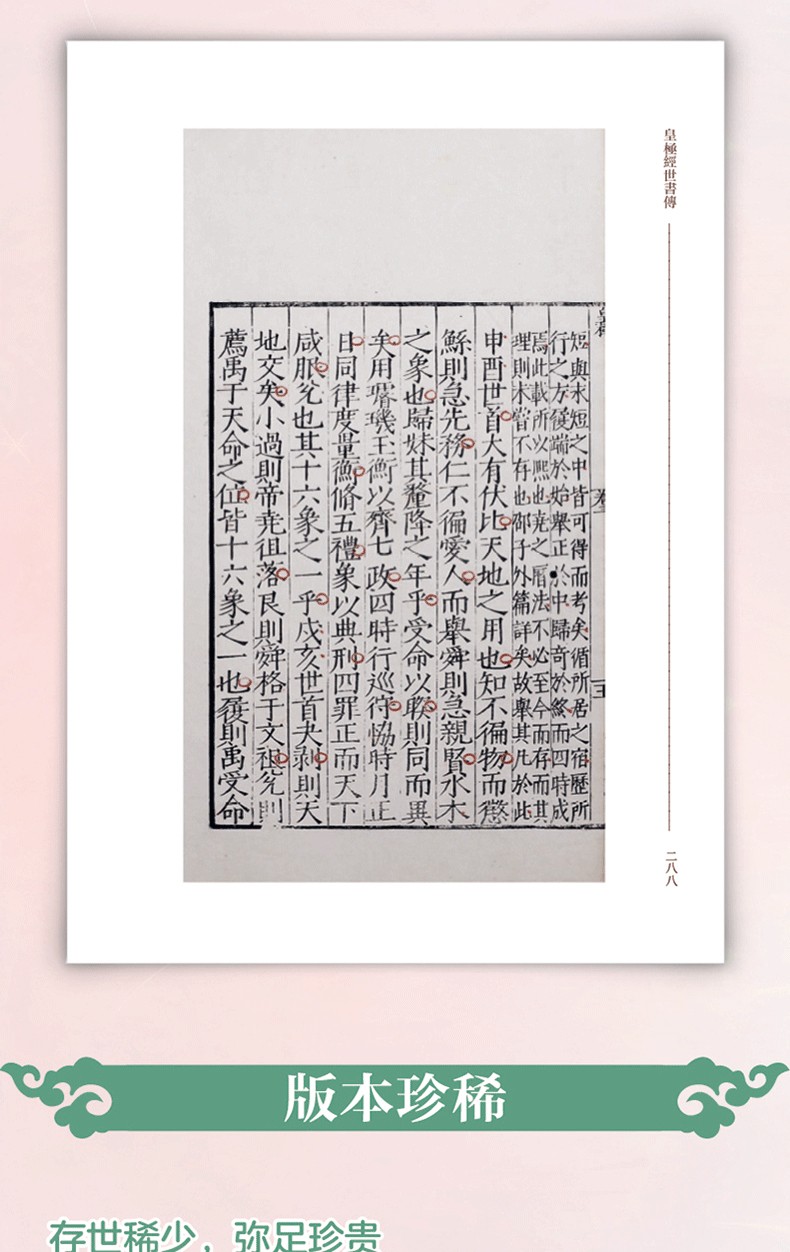 皇極經世書傳
二八八
短與末短之中皆可得而考矣循所居之宿歷所
行之方候端於始舉正於中歸奇於終而四時成
焉此載所以熙也堯之曆法不必至今而存而其
理則未嘗不存也邵子外篇詳矣故舉其凡於此
申酉世首大有伏比天地之用也知不徧物而懲
鯀則急先務仁不徧愛人而舉舜則急親賢水木
之象也歸妹其釐降之年乎受命以睽則同而異
矣用璿璣玉衡以齊七政四時行巡狩協時月正
日同律度量衡脩五禮象以典刑四罪正而天下
咸服兊也其十六象之一乎戌亥世首夬剥則天
地交矣小過則帝堯徂落艮則舜格于文祖兊則
薦禹于天命之位皆十六象之一也履則禹受命
版本珍稀
存世稀少，弥足珍贵